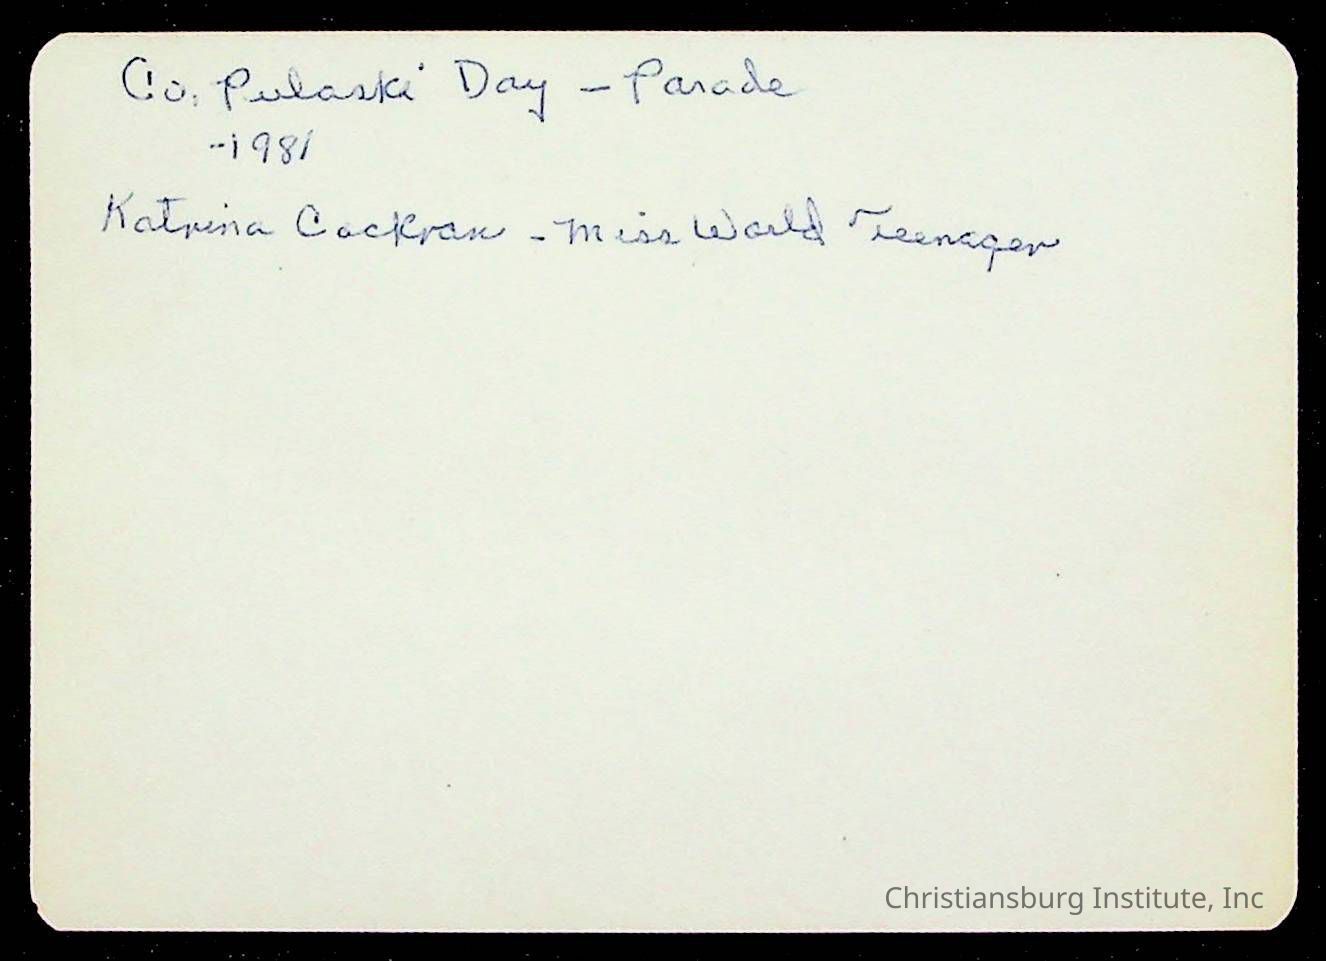 Co. Pulaski Day - Parade
-1981
Katrina Cockran - Miss World Teenager
Christiansburg Institute, Inc